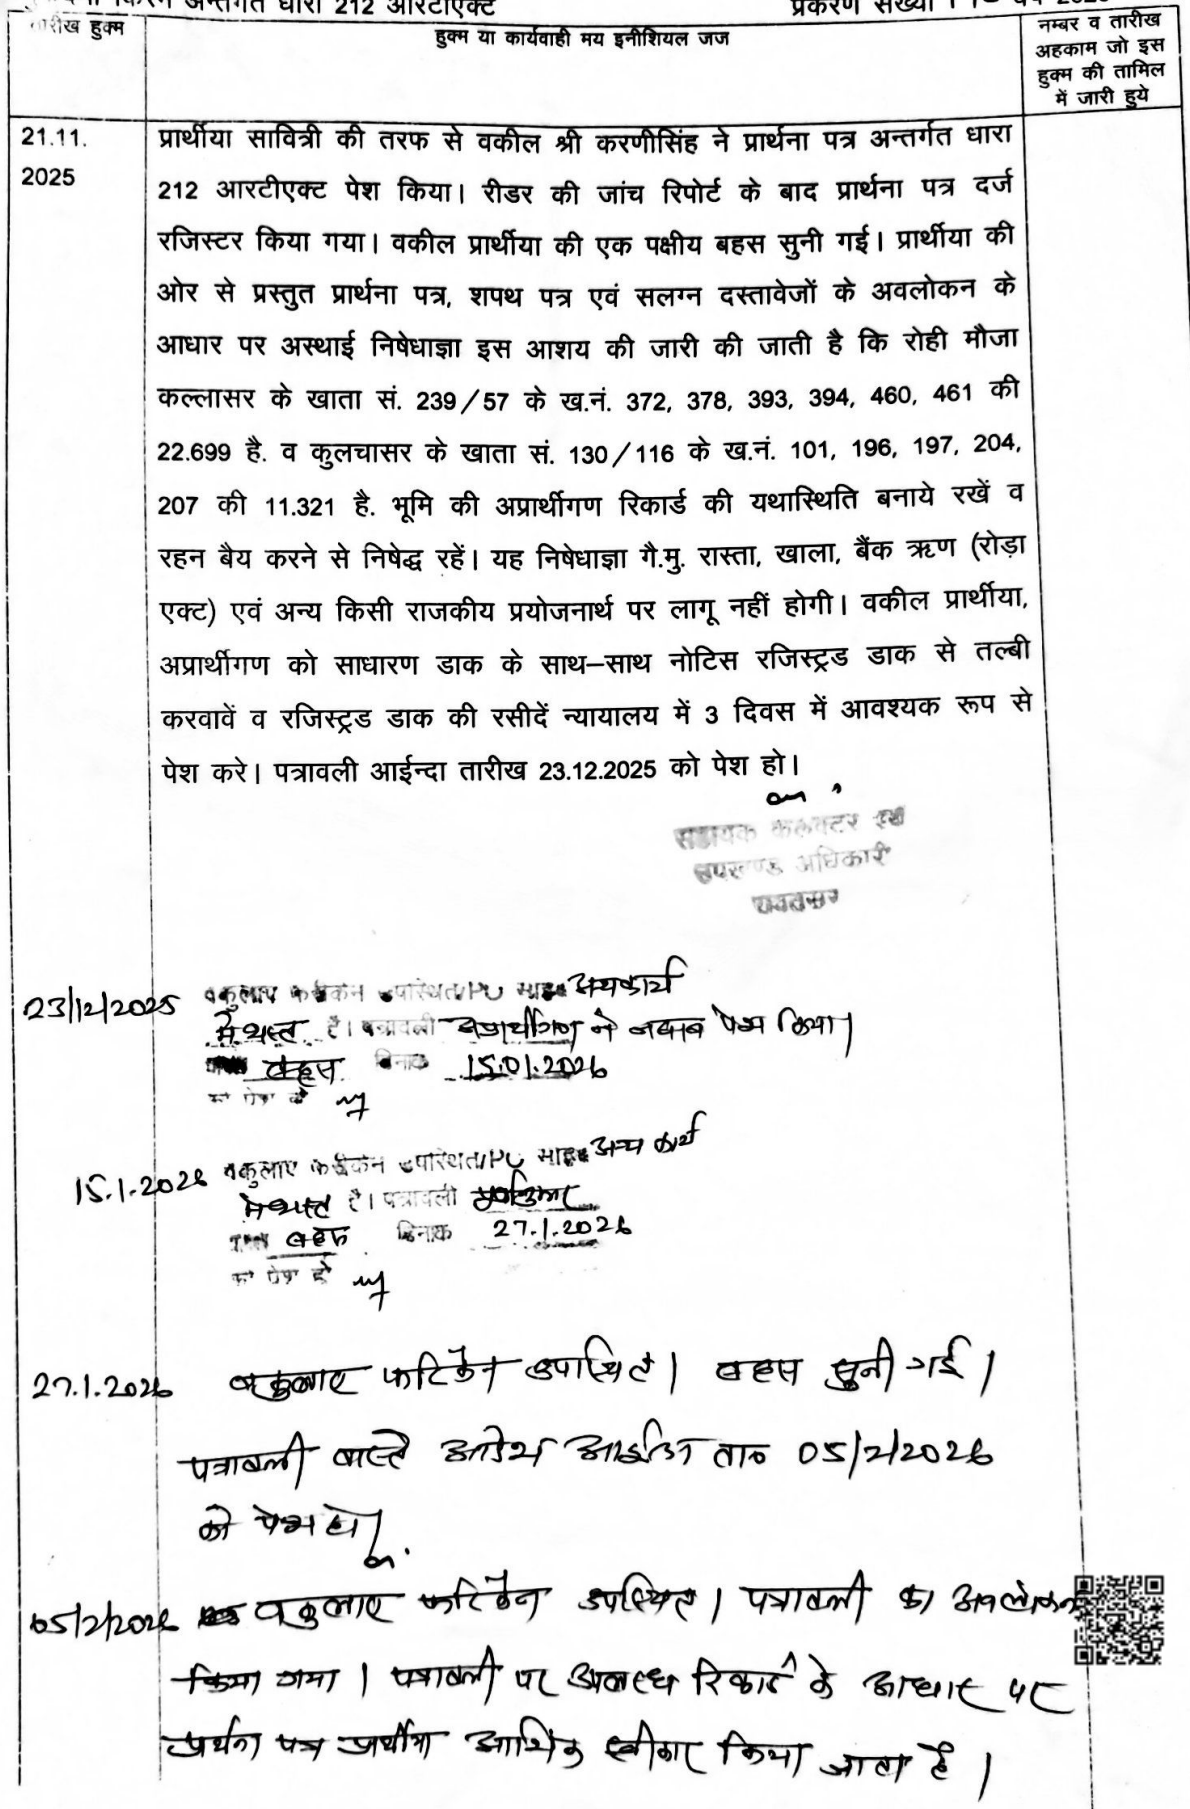 अन्तर्गत धारा 212 आरटीएक्ट
प्रकरण संख्या
तारीख हुक्म
हुक्म या कार्यवाही मय इनीशियल जज
नम्बर व तारीख
अहकाम जो इस
हुक्म की तामिल
में जारी हुये
21.11.
2025
प्रार्थीया सावित्री की तरफ से वकील श्री करणीसिंह ने प्रार्थना पत्र अन्तर्गत धारा
212 आरटीएक्ट पेश किया। रीडर की जांच रिपोर्ट के बाद प्रार्थना पत्र दर्ज
रजिस्टर किया गया। वकील प्रार्थीया की एक पक्षीय बहस सुनी गई। प्रार्थीया की
ओर से प्रस्तुत प्रार्थना पत्र, शपथ पत्र एवं सलग्न दस्तावेजों के अवलोकन के
आधार पर अस्थाई निषेधाज्ञा इस आशय की जारी की जाती है कि रोही मौजा
कल्लासर के खाता सं. 239/57 के ख.नं. 372, 378, 393, 394, 460, 461 की
22.699 है. व कुलचासर के खाता सं. 130/116 के ख.नं. 101, 196, 197, 204,
207 की 11.321 है. भूमि की अप्रार्थीगण रिकार्ड की यथास्थिति बनाये रखें व
रहन बैय करने से निषेद्ध रहें। यह निषेधाज्ञा गै.मु. रास्ता, खाला, बैंक ऋण (रोड़ा
एक्ट) एवं अन्य किसी राजकीय प्रयोजनार्थ पर लागू नहीं होगी। वकील प्रार्थीया,
अप्रार्थीगण को साधारण डाक के साथ–साथ नोटिस रजिस्ट्रड डाक से तल्बी
करवावें व रजिस्ट्रड डाक की रसीदें न्यायालय में 3 दिवस में आवश्यक रूप से
पेश करे। पत्रावली आईन्दा तारीख 23.12.2025 को पेश हो।
सहायक कलक्टर एवं
उपखण्ड अधिकारी
23/12/2025 वकुलाए फरीकेन उपस्थित/PO साहब अन्यकार्य
में व्यस्त है। पत्रावली अप्रार्थीगण ने जवाब पेश किया।
बहस दिनांक 15.01.2026
को पेश हो
15.1.2026 वकुलाए फरीकेन उपस्थित/PO साहब अन्य कार्य
में व्यस्त है। पत्रावली
वास्ते बहस दिनांक 27.1.2026
को पेश हो
27.1.2026 वकुलाए फरिकेन उपस्थित। बहस सुनी गई।
पत्रावली वास्ते आदेश आईन्दा ता० 05/2/2026
को पेश हो।
05/2/2026 वकुलाए फरिकेन उपस्थित। पत्रावली का अवलोकन
किया गया। पत्रावली पर उपलब्ध रिकार्ड के आधार पर
प्रार्थना पत्र प्रार्थीया आंशिक स्वीकार किया जाता है।